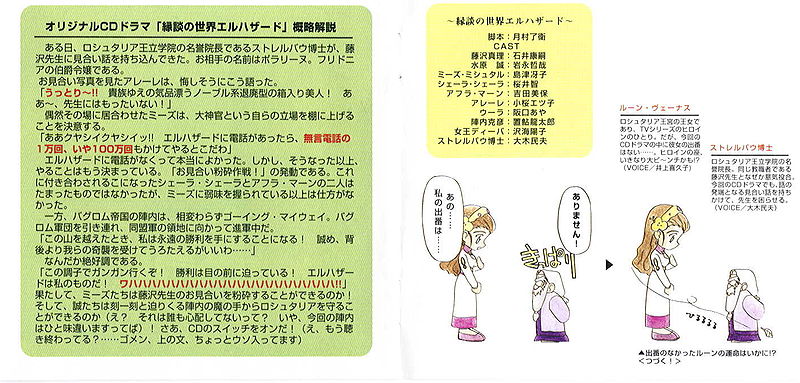 オリジナルCDドラマ「縁談の世界エルハザード」概略解説
ある日、ロシュタリア王立学院の名誉院長であるストレルバウ博士が、藤
沢先生に見合い話を持ち込んできた。お相手の名前はボラリーヌ。フリドニ
アの伯爵令嬢である。
お見合い写真を見たアレーレは、悔しそうにこう語った。
「うっとり〜!! 貴族ゆえの気品漂うノーブル系退廃型の箱入り美人! あ
あ〜、先生にはもったいない!」
偶然その場に居合わせたミーズは、大神官という自らの立場を棚に上げる
ことを決意する。
「ああクヤシイクヤシイッ!! エルハザードに電話があったら、無言電話の
1万回、いや100万回もかけてやるとこだわ」
エルハザードに電話がなくって本当によかった。しかし、そうなった以上、
やることはもう決まっている。「お見合い粉砕作戦!」の発動である。これ
に付き合わされることになったシェーラ・シェーラとアフラ・マーンの二人は
たまったものではなかったが、ミーズに弱味を握られている以上は仕方がな
かった。
一方、バグロム帝国の陣内は、相変わらずゴーイング・マイウェイ。バグ
ロム軍団を引き連れ、同盟軍の領地に向かって進軍中だ。
「この山を越えたとき、私は永遠の勝利を手にすることになる! 誠め、背
後より我らの奇襲を受けてうろたえるがいいわ……」
なんだか絶好調である。
「この調子でガンガン行くぞ! 勝利は目の前に迫っている! エルハザー
ドは私のものだ! ワハハハハハハハハハハハハハハハハハハハハハハハ!!」
果たして、ミーズたちは藤沢先生のお見合いを粉砕することができるのか!
そして、誠たちは刻一刻と迫りくる陣内の魔の手からロシュタリアを守るこ
とができるのか(え? それは誰も心配してないって? いや、今回の陣内
はひと味違いますってば)! さあ、CDのスイッチをオンだ!(え、もう聴
き終わってる?……ゴメン、上の文、ちょっとウソ入ってます)
〜縁談の世界エルハザード〜
脚本:月村了衛
CAST
藤沢真理:石井康嗣
水原 誠:岩永哲哉
ミーズ・ミシュタル:島津冴子
シェーラ・シェーラ:桜井智
アフラ・マーン:吉田美保
アレーレ:小桜エツ子
ウーラ:阪口あや
陣内克彦:置鮎龍太郎
女王ディーバ:沢海陽子
ストレルバウ博士:大木民夫
あの……
私の出番は……
ありません!
きっぱり
ルーン・ヴェーナス
ロシュタリア王宮の王女で
あり、TVシリーズのヒロイ
ンのひとり。だが、今回の
CDドラマ中に彼女の出番
はない……。ヒロインの座、
いきなり大ピ〜ンチかも!?
(VOICE/井上喜久子)
ストレルバウ博士
ロシュタリア王立学院の名
誉院長。同じ教職者である
藤沢先生となぜか意気投合。
今回のCDドラマでも、話の
発端となる見合い話を持ち
かけて、先生を困らせる。
(VOICE/大木民夫)
ひるるるる
▲出番のなかったルーンの運命はいかに!?
<つづく!>